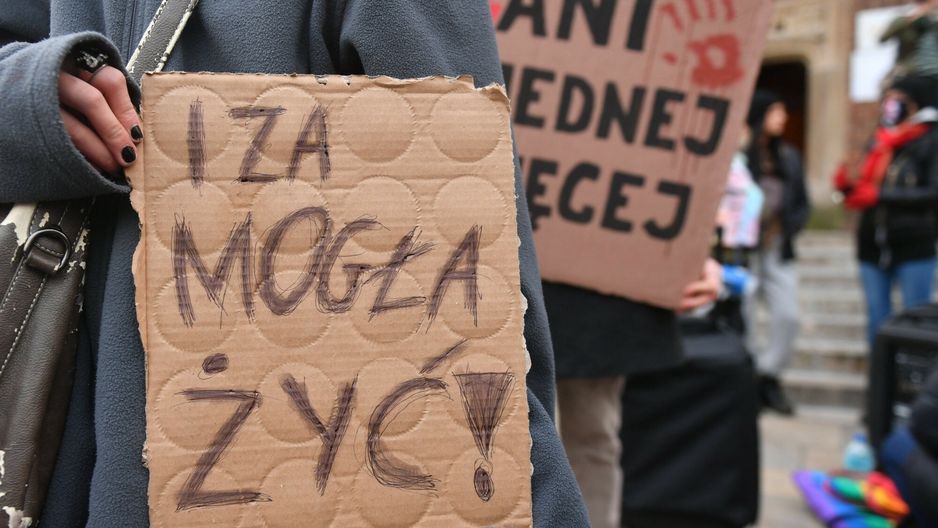 I ZA
MOGŁA
ŻYĆ!
ANI
JEDNEJ
WIĘCEJ